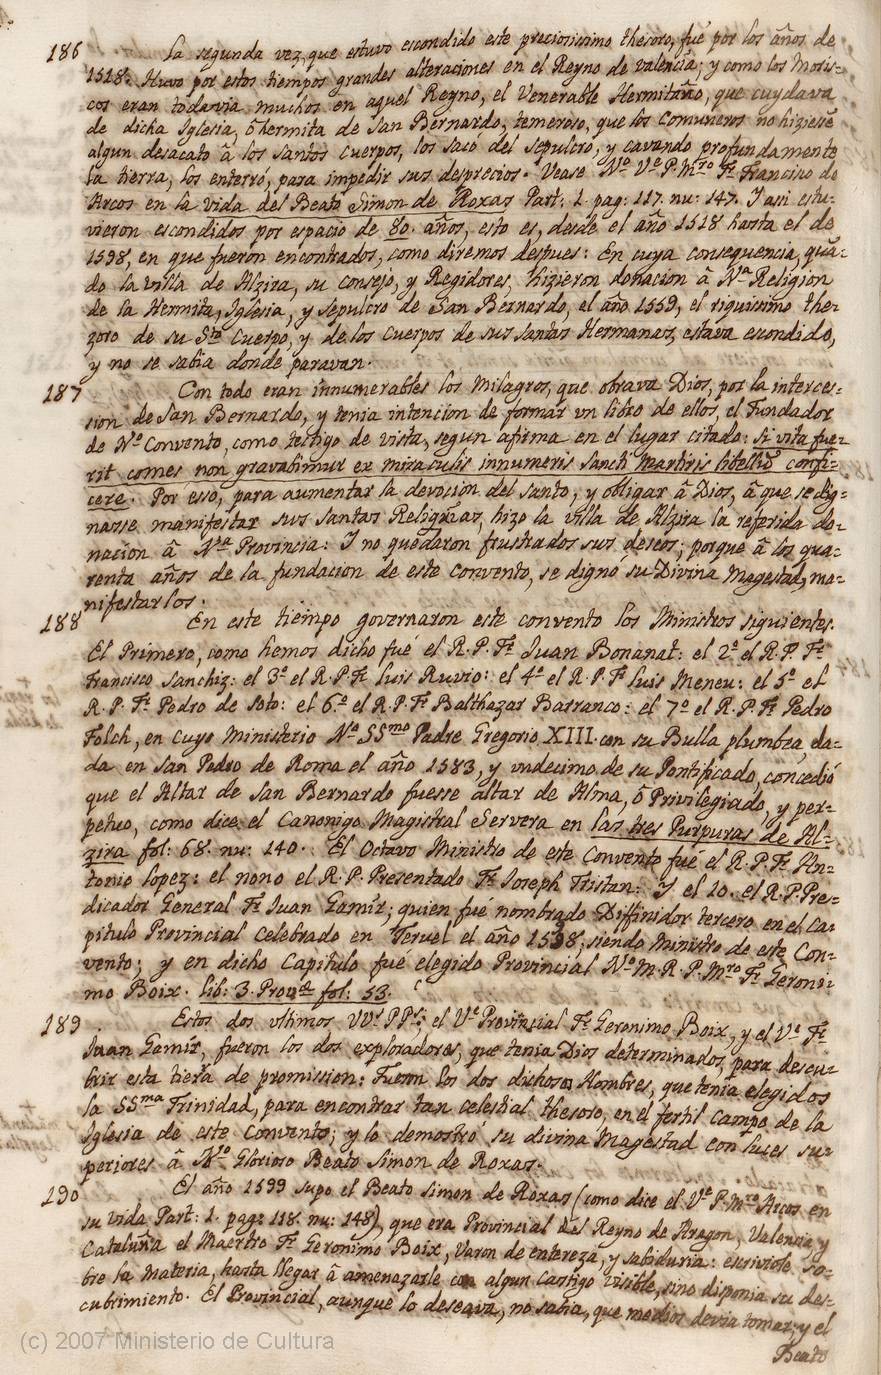 186 La segunda vez, que estuvo escondido este preciosissimo thesoro, fué por los años de
1518. Huvo por estos tiempos grandes alteraciones en el Reyno de valencia; y como los Moris-
cos eran todavia muchos en aquel Reyno, el Venerable Hermitaño, que cuydava
de dicha Iglesia, ô hermita de San Bernardo, temeroso, que los Comuneros no hiziesse
algun desacato â los santos cuerpos, los sacó del sepulcro, y cavando profundamente
la tierra, los enterró, para impedir sus desprecios. Vease Nº. Vᵉ. P. Mʳᵒ Fʳ. Francisco de
Arcos en la vida del Beato Simon de Roxas Part. 1. pag: 117. nu: 147. Y assi estu-
vieron escondidos por espacio de 80. años, esto es, desde el año 1518 hasta el de
1598, en que fueron encontrados, como diremos despues: En cuya consequencia, quã-
do la villa de Alzira, su consejo, y Regidores, hizieron donacion â Nª Religion
de la Hermita, Iglesia, y sepulcro de San Bernardo, el año 1559, el riquissimo the-
zoro de su Sᵗᵒ Cuerpo, y de los Cuerpos de sus santas Hermanas, estava escondido,
y no se sabia donde paravan.
187 Con todo eran innumerables los Milagros, que obrava Dios, por la interces-
sion de San Bernardo, y tenia intencion de formar vn libro de ellos, el Fundador
de Nº Convento, como testigo de vista, segun afirma en el lugar citado: si vita fue-
rit comes, non gravabimur ex miraculis innumeris sancti Martiris libellũ confi-
cere. Por esso, para aumentar la devocion del santo, y obligar â Dios, â que se dig-
nasse manifestar sus santas Reliquias, hizo la villa de Alzira la referida do-
nacion â Nª Provincia: Y no quedaron frustrados sus deseos; porque â los qua-
renta años de la fundacion de este Convento, se dignó su Divina Magestad, ma-
nifestarlos.
188 En este tiempo governaron este convento los Ministros siguientes.
El Primero, como hemos dicho fué el R. P. Fʳ. Juan Bonanat: el 2º el R. P. Fʳ.
Francisco Sanchiz: el 3º el R. P. Fʳ. Luis Ruvio: el 4º el R. P. Fʳ Luis Meneu: el 5º el
R. P. Fʳ. Pedro de Soto: el 6º el R. P. Fʳ Balthazar Barranco: el 7º el R. P. Fʳ. Pedro
Folch, en cuyo Ministerio Nº SSᵐᵒ Padre Gregorio XIII. con su Bulla plumbea, da-
da en San Pedro de Roma el año 1583, y vndecimo de su Pontificado, concedió
que el Altar de San Bernardo fuesse altar de Alma, ô Privilegiado, y per-
petuo, como dice el Canonigo Magistral Servera en las tres Purpuras de Al-
zira fol: 68. nu: 140. El Octavo Ministro de este Convento fué el R. P. Fʳ. An-
tonio Lopez: el nono el R. P. Presentado Fʳ. Joseph Tristan: Y el 10. el R. P. Pre-
dicador General Fʳ. Juan Gamîr; quien fué nombrado Diffinidor tercero en el Ca-
pitulo Provincial celebrado en Teruel el año 1598, siendo Ministro de este Con-
vento; y en dicho Capitulo fué elegido Provincial Nº M. R. P. Mʳᵒ Fʳ. Geroni-
mo Boix. Lib: 3. Provª fol: 53.
189 Estos dos vltimos VVˢ PPˢ; el Vᵉ Provincial Fʳ. Geronimo Boix, y el Vᵉ Fʳ.
Juan Gamîr, fueron los dos exploradores, que tenia Dios determinados, para descu-
brir esta tierra de promission: Fueron los dos dichosos Hombres, que tenia elegidos
la SSᵐᵃ Trinidad, para encontrar tan celestial thesoro, en el fertil campo de la
Iglesia de este Convento; y lo demostró su divina Magestad con luces su-
periores â Nº Glorioso Beato Simon de Roxas.
190 El año 1599 supo el Beato Simon de Roxas (como dice el Vᵉ P. Mʳᵒ Arcos en
su vida Part: 1. pag: 118. nu: 148), que era Provincial del Reyno de Aragon, Valencia y
Cataluña el Maestro Fʳ. Geronimo Boix, Varon de entereza, y sabiduria: escriviole so-
bre la Materia, hasta llegar â amenazarle con algun castigo visible, sino disponia su des-
cubrimiento. El Provincial, aunque lo deseava, no sabia, que medios devia tomar; y el
Beato
(c) 2007 Ministerio de Cultura